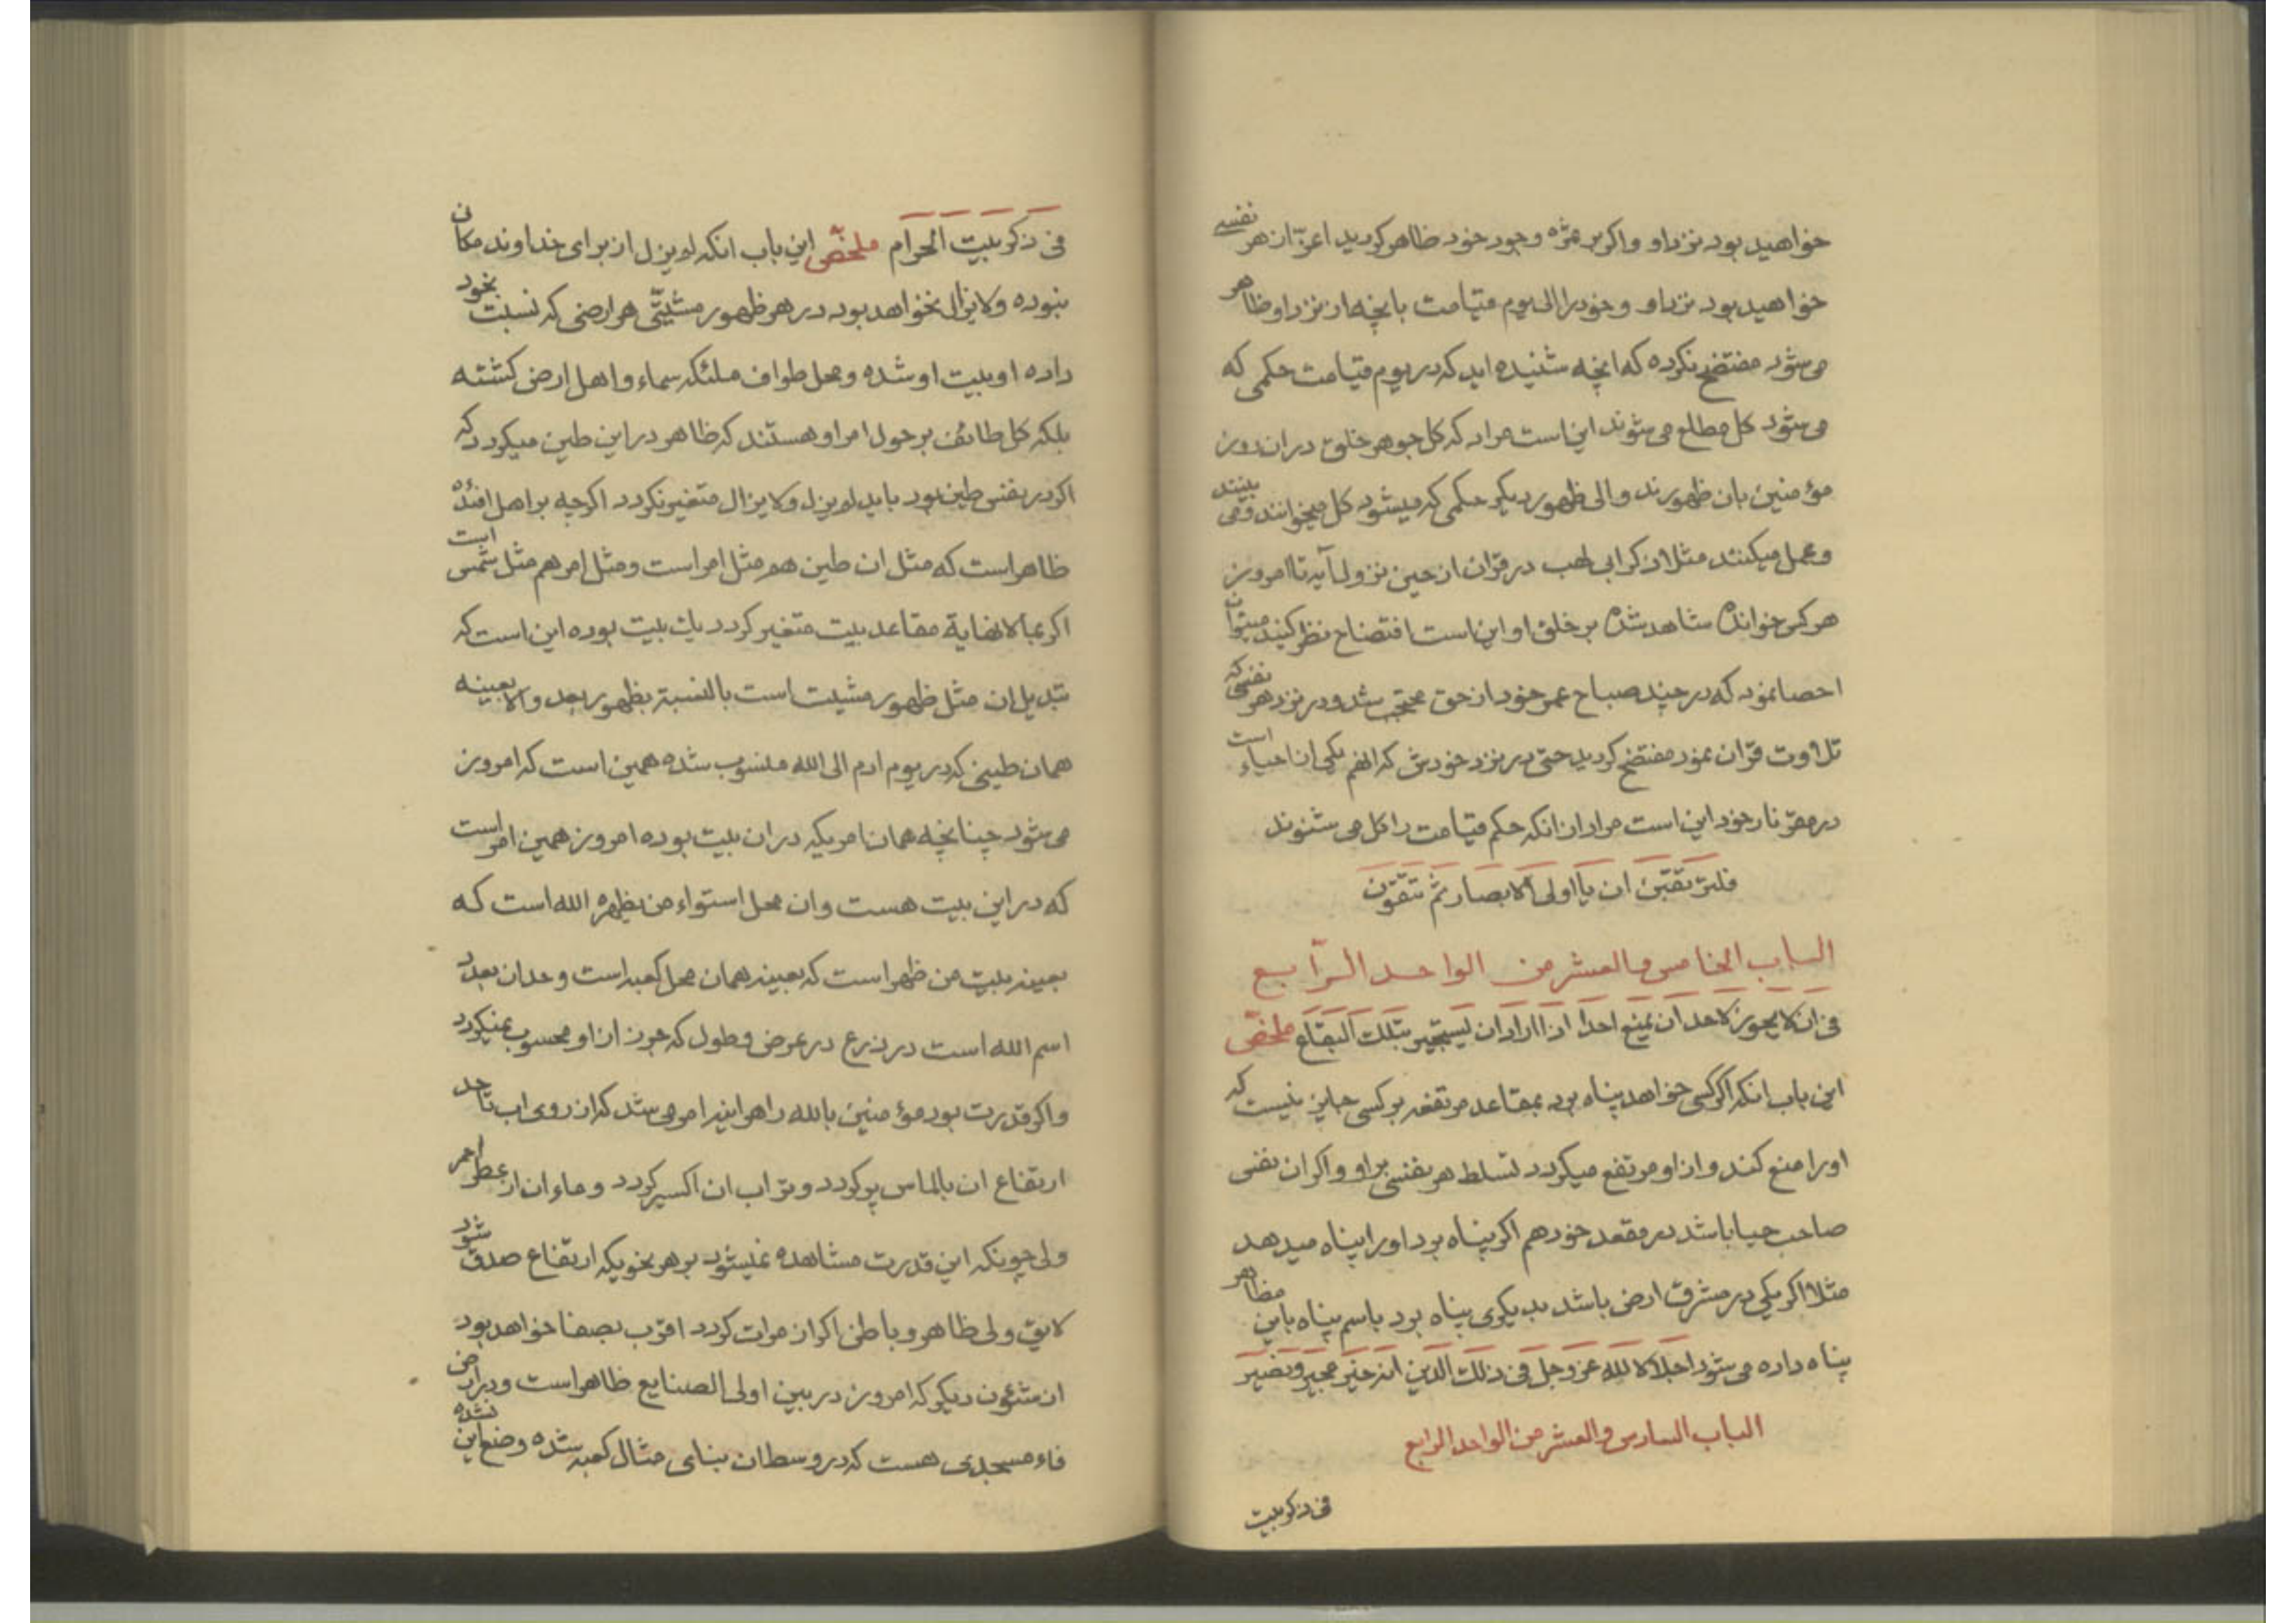 خواهید بود نزد او واکر بر عزه وجود خود ظاهر کردید اعز از هر نفسی
خواهید بود نزد او وخود را الی یوم قیامت بانچه از نزد او ظاهر
می شود مفتضح نکرده که انچه شنیده اید که در یوم قیامت حکمی که
می شود کل مطلع می شوند این است مراد که کل جوهر خلق در ان روز
مؤمنین بان ظهورند والی ظهور دیکر حکمی که میشود کل میخوانند ومی بینند
وعمل میکنند مثلا ذکر ابی لهب در قران از حین نزول آیه تا امروز
هر کس خوانده مشاهد شده بر خلق او این است افتضاح نظر کنید میتوان
احصا نمود که در چند صباح عمر خود از حق محتجب شد ودر نزد هر نفسی که
تلاوت قران نمود مفتضح کردید حتی در نزد خودش که انهم یکی از احیاء است
در مقر نار خود این است مراد از انکه حکم قیامت را کل می شنوند
فلترتقبن ان یا اولی الابصار ثم تتقون
الباب الخامس والعشر من الواحد الرابع
فی ان لا یجوز لاحد ان یمنع احدا اذا اراد ان یستجیر بتلک البقاع ملخص
این باب انکه اکر کسی خواهد پناه برد بمقاعد مرتفعه بر کسی جایز نیست که
اورا منع کند واز او مرتفع میکردد تسلط هر نفسی بر او واکر ان نفس
صاحب حیا باشد در مقعد خود هم اکر پناه برد اورا پناه میدهد
مثلا اکر یکی در مشرق ارض باشد بدیکری پناه برد باسم پناه باین مظاهر
پناه داده می شود اجلالا لله عز وجل فی ذلک الدین انه خیر مجیر ونصیر
الباب السادس والعشر من الواحد الرابع
فی ذکر بیت
فی ذکر بیت الحرام ملخص این باب انکه لم یزل از برای خداوند مکان
نبوده ولا یزال نخواهد بود در هر ظهور مشیتی هر ارضی که نسبت بخود
داده او بیت او شده ومحل طواف ملئکه سماء واهل ارض کشته
بلکه کل طائف بر حول امر او هستند که ظاهر در این طین میکردد که
اکر در نفس طین بود باید لم یزل ولا یزال متغیر نکردد اکر چه بر اهل افئده
ظاهر است که مثل ان طین هم مثل امر است ومثل امر هم مثل شمس است
اکر بما لا نهایة مقاعد بیت متغیر کردد یک بیت بوده این است که
تبدیل ان مثل ظهور مشیت است بالنسبة بظهور بعد والا بعینه
همان طینی که در یوم ادم الی الله منسوب شده همین است که امروز
می شود چنانچه همان امریکه در ان بیت بوده امروز همین امر است
که در این بیت هست وان محل استواء من یظهره الله است که
بعینه بیت من ظهر است که بعینه همان محل کعبه است وحد ان بعدد
اسم الله است در ذرع در عرض وطول که جون از او محسوب نمیکردد
واکر قدرت بود مؤمنین بالله را هر اینه امر می شد که از روی اب تا حد
ارتفاع ان بالماس پر کردد وتراب ان اکسیر کردد وماء ان از عطر احمر
ولی چونکه این قدرت مشاهده نمیشود بر هر نحویکه ارتفاع صدق شود
لایق ولی ظاهر وباطن اکر از مرات کردد اقرب بصفا خواهد بود
از شئون دیکر که امروز در بین اولی الصنایع ظاهر است ودر ارض
فاء مسجدی هست که در وسط ان بنای مثال کعبه شده وضع این نشده